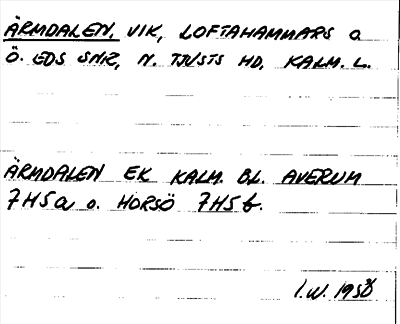 ÄRMDALEN, VIK, LOFTAHAMMARS O
Ö. EDS SNR, N. TJUSTS HD, KALM. L.
ÄRMDALEN EK KALM. BL. AVERUM
7H5a o. HORSÖ 7H5b.
I.W. 1958